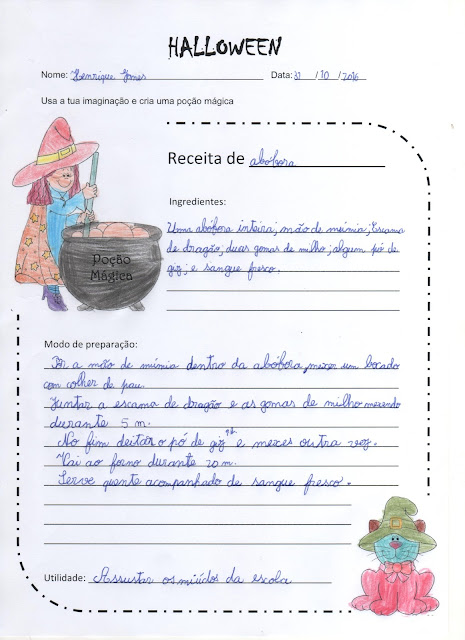 HALLOWEEN
Nome: Henrique Gomes Data: 31/10/2016
Usa a tua imaginação e cria uma poção mágica
Receita de abóbora
Ingredientes:
Uma abóbora inteira, mão de múmia, Escama
de dragão, duas gomas de milho, algum pó de
giz, e sangue fresco.
Poção
Mágica
Modo de preparação:
Pôr a mão de múmia dentro da abóbora, mexer um bocado
com colher de pau.
Juntar a escama de dragão e as gomas de milho mexendo
durante 5 m.
No fim deitar o pó de giz e mexes outra vez.
Vai ao forno durante 20 m.
Serve quente acompanhado de sangue fresco.
Utilidade: Assustar os miúdos da escola